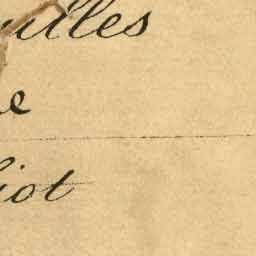 illes
e
iot